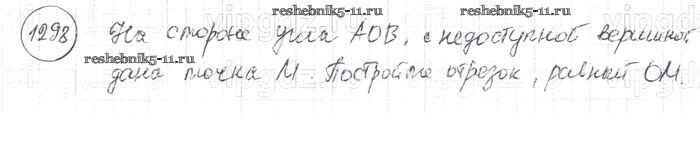 reshebnik5-11.ru
1298 На стороне угла АОВ, с недоступной вершиной
reshebnik5-11.ru
дана точка М. Постройте отрезок, равный ОМ.
reshebnik5-11.ru